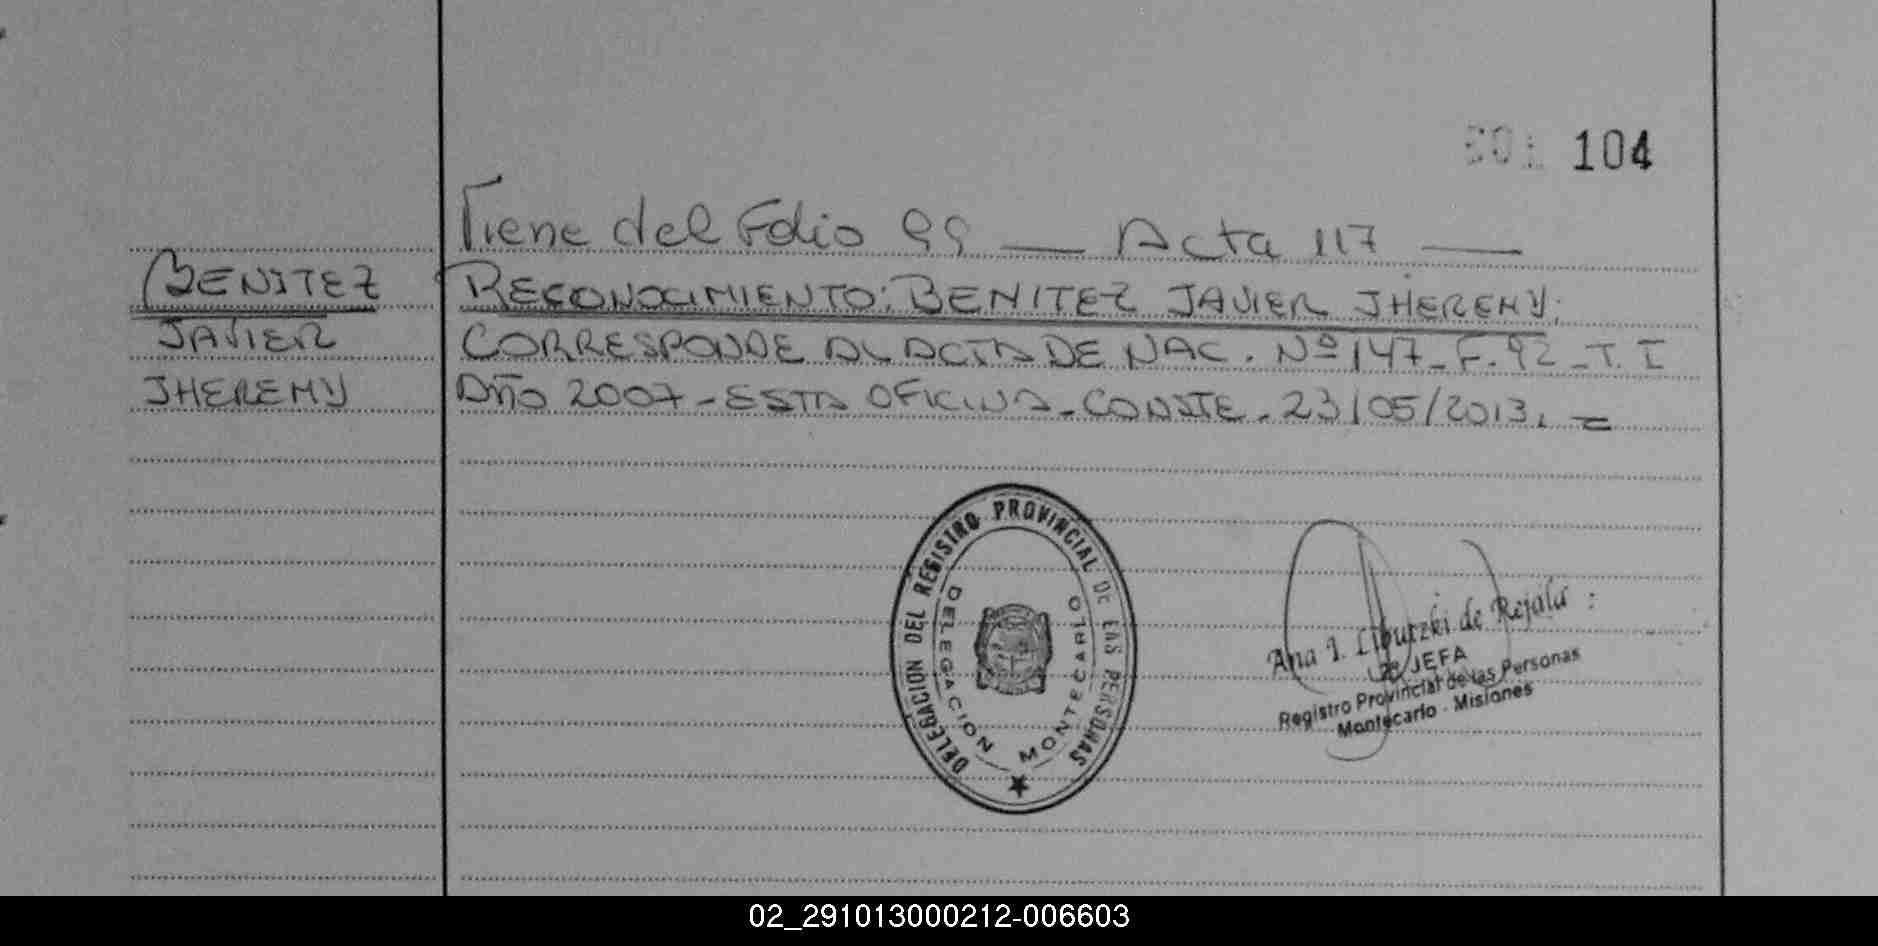 104
Viene del Folio 99 — Acta 117 —
BENITEZ
JAVIER
JHEREMY
RECONOCIMIENTO: BENITEZ JAVIER JHEREMY.
CORRESPONDE AL ACTA DE NAC. Nº 147 - F. 92 - T. I
Año 2007 - ESTA OFICINA - CONSTE - 23/05/2013. =
DELEGACION DEL REGISTRO PROVINCIAL DE LAS PERSONAS
DELEGACION MONTECARLO
Ana I. de Rejala
JEFA
Registro Provincial de las Personas
Montecarlo - Misiones
02_291013000212-006603